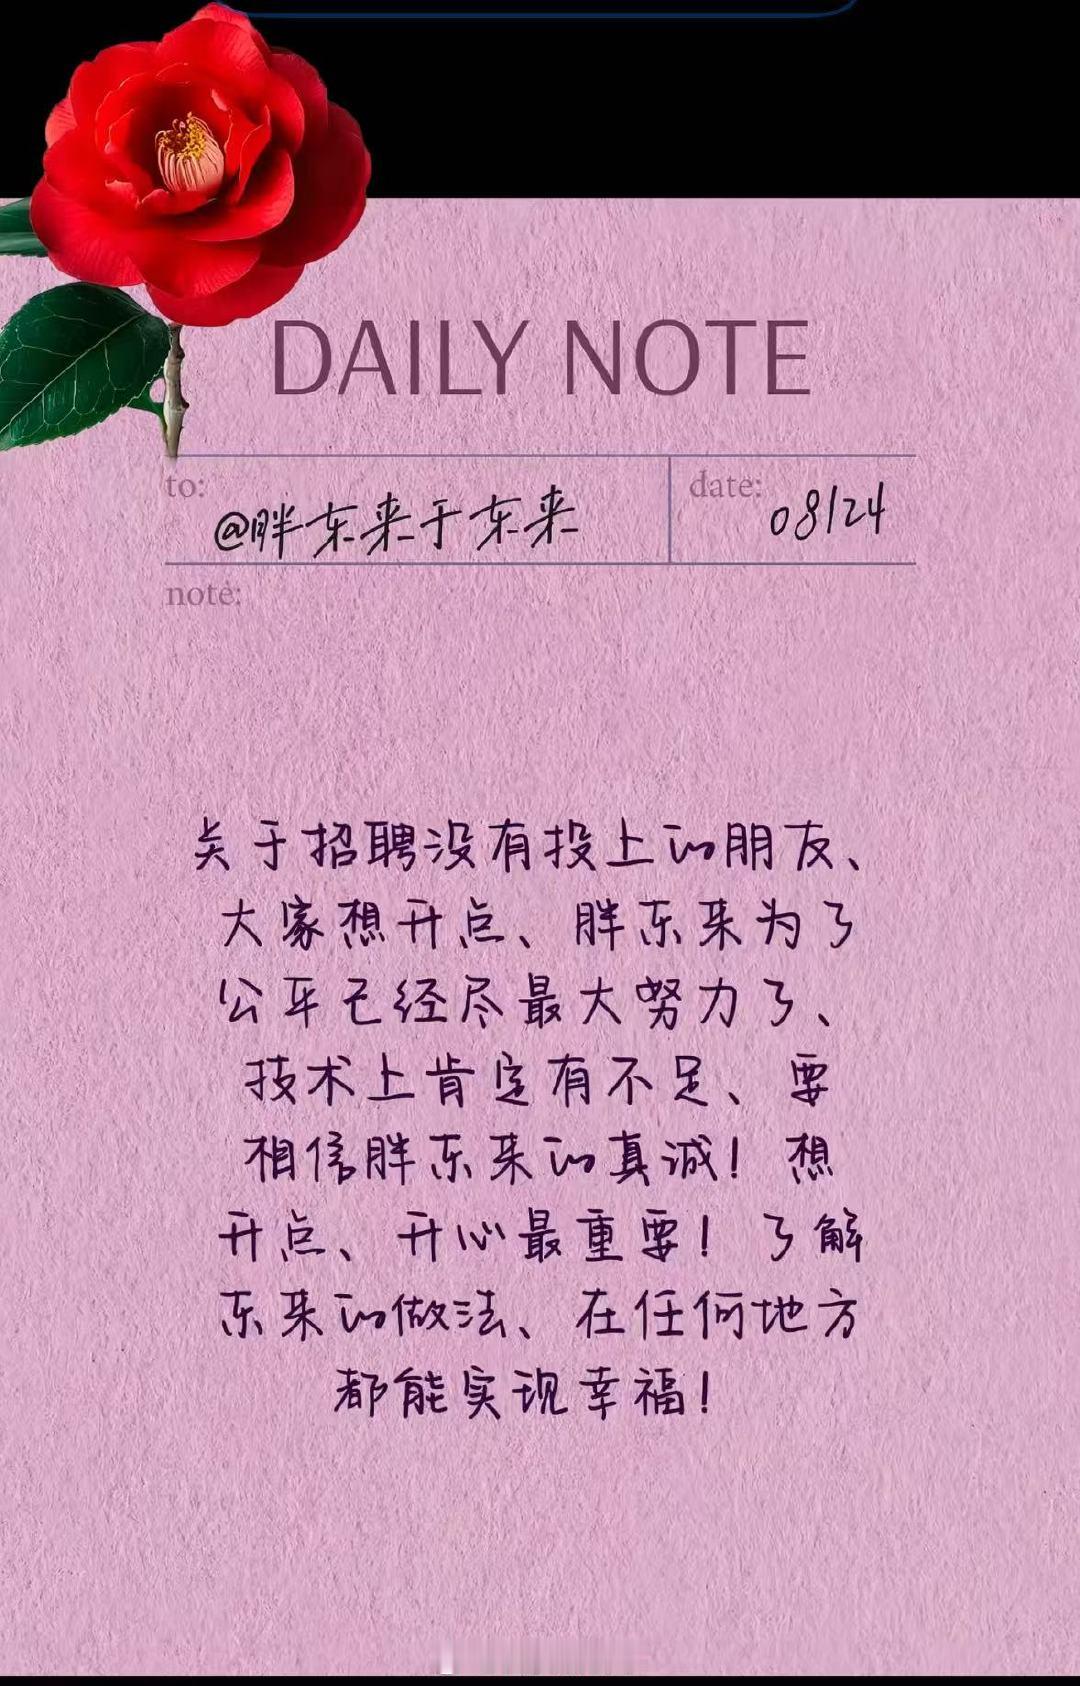 DAILY NOTE
to:
@胖东来于东来
date:
08/24
note:
关于招聘没有投上的朋友、
大家想开点、胖东来为了
公平已经尽最大努力了、
技术上肯定有不足、要
相信胖东来的真诚！想
开点、开心最重要！了解
东来的做法、在任何地方
都能实现幸福！